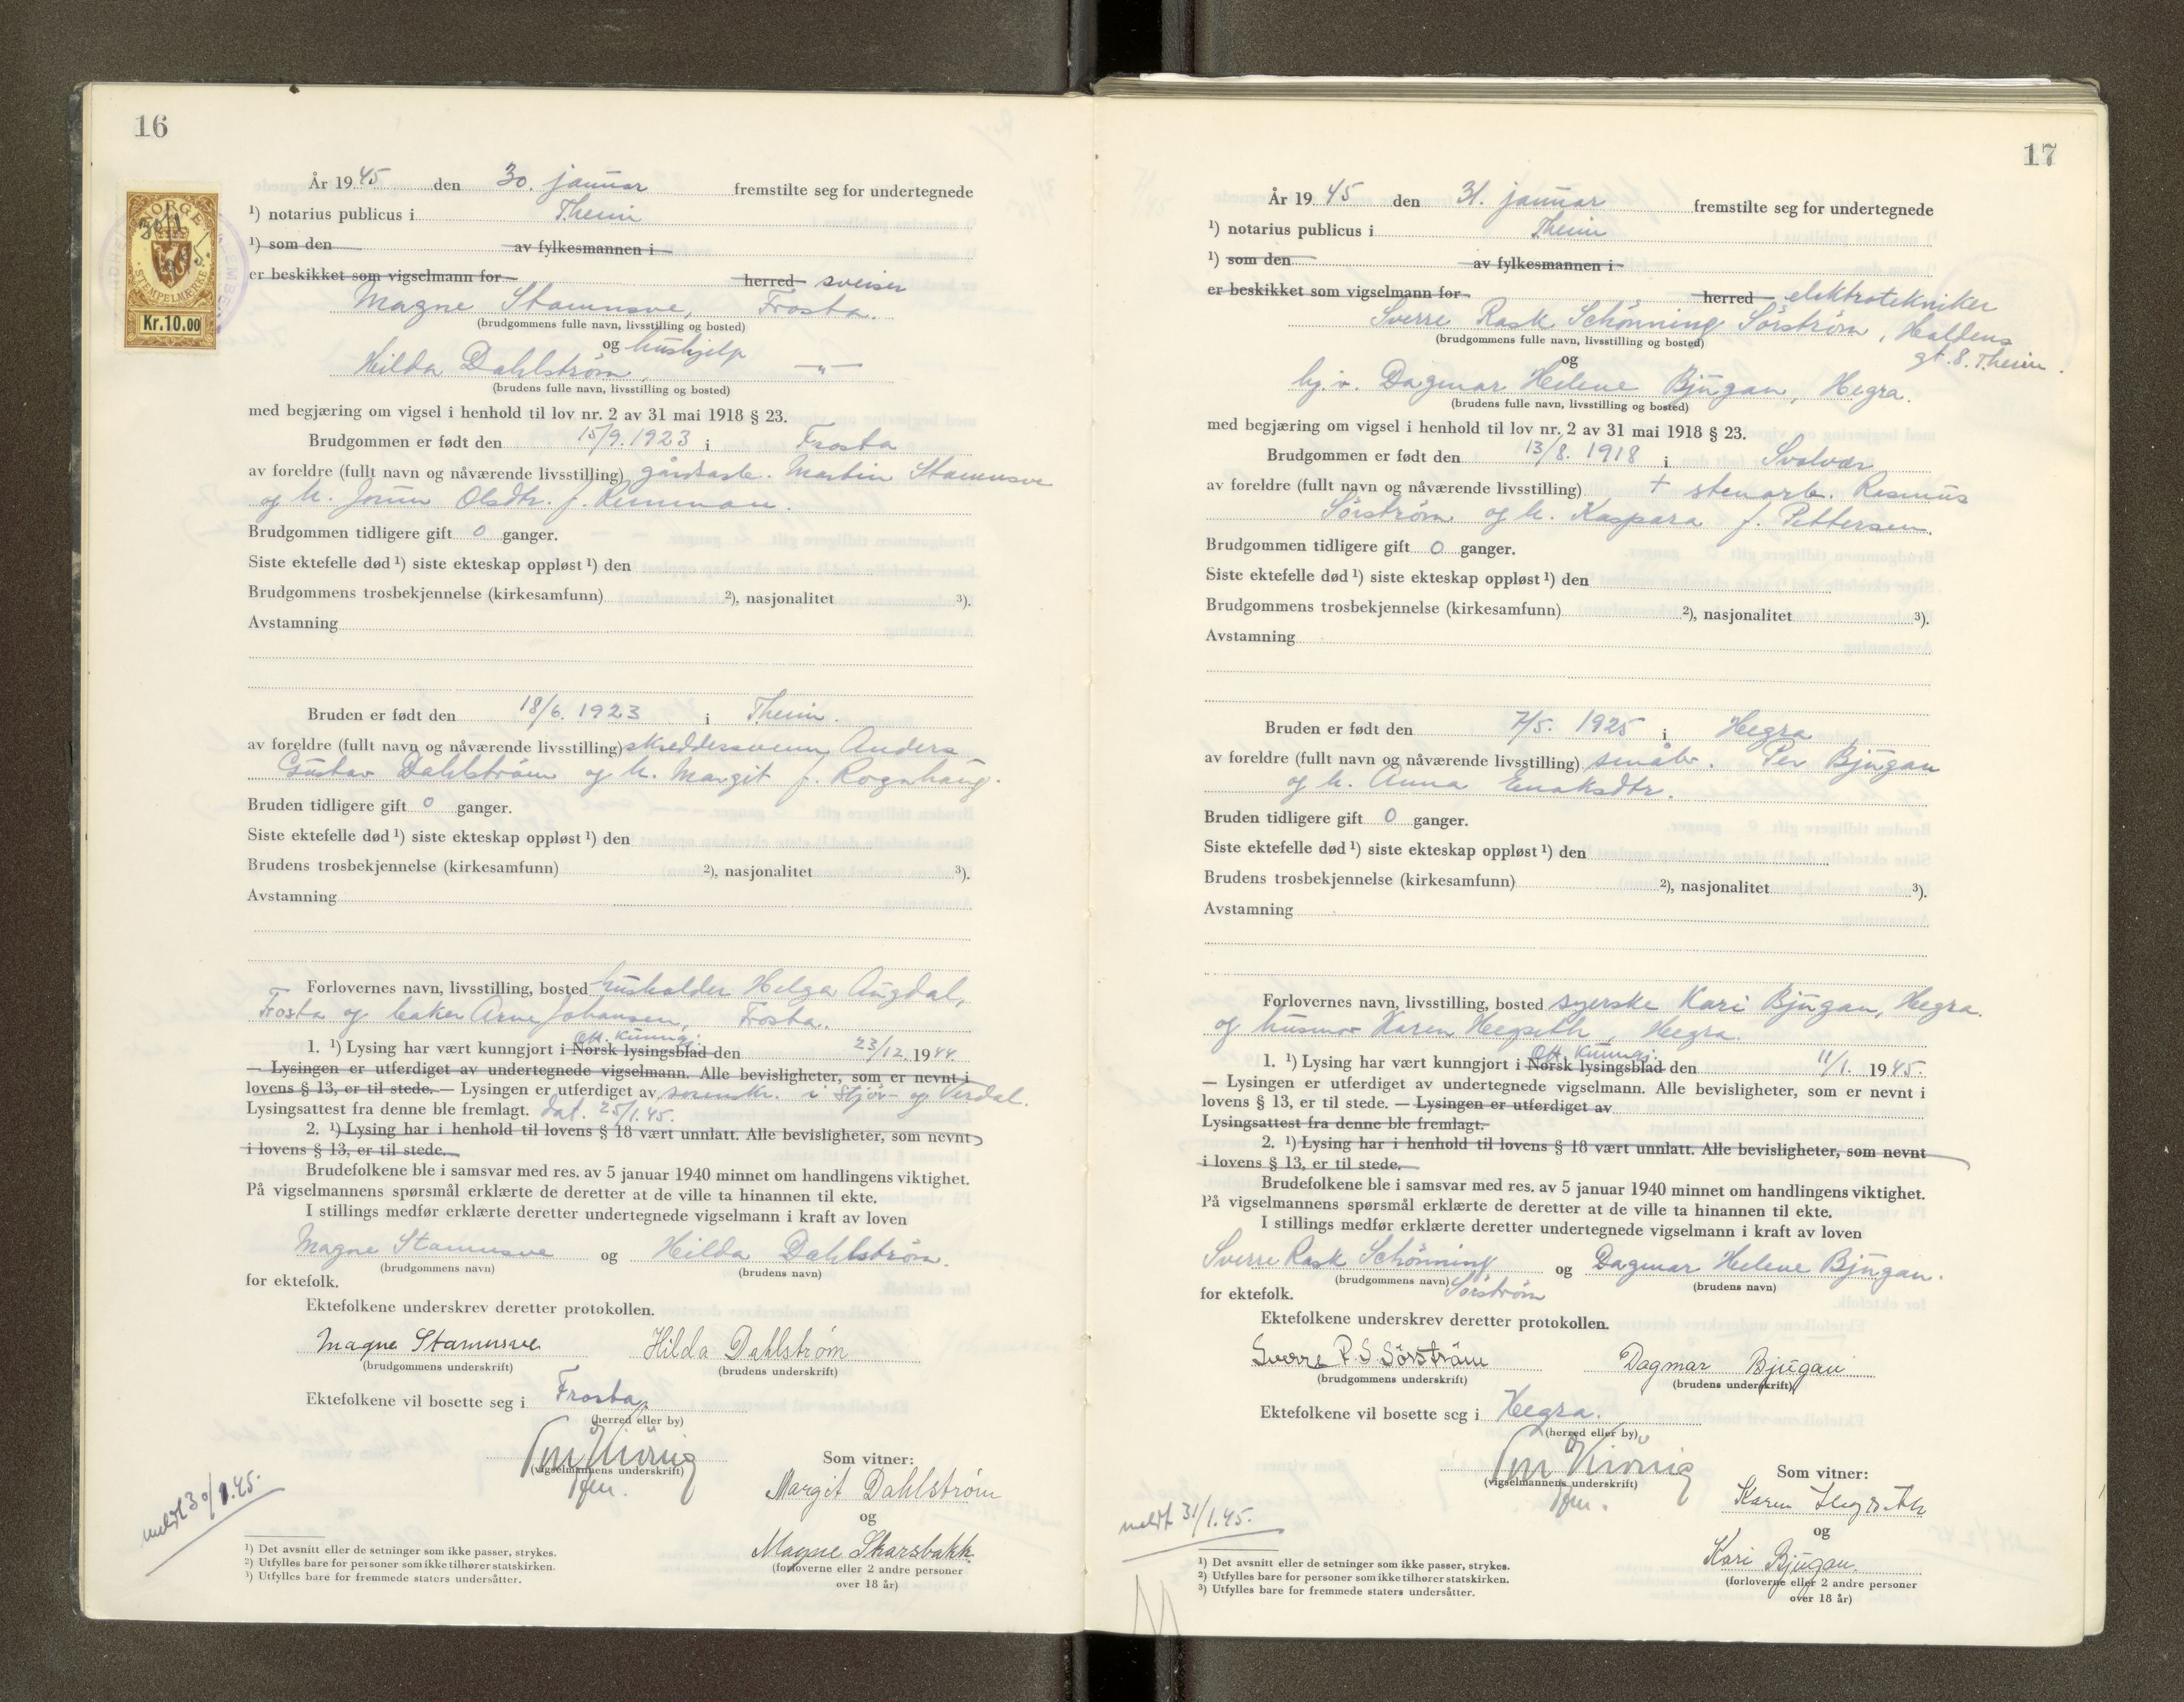 16
År 1945 den 30. januar fremstilte seg for undertegnede
¹) notarius publicus i Theim
¹) som den av fylkesmannen i
er beskikket som vigselmann for herred sveiser
Magne Stamnsve, Frosta.
(brudgommens fulle navn, livsstilling og bosted)
og hushjelp
Hilda Dahlstrøm, —"—
(brudens fulle navn, livsstilling og bosted)
NORGE
30/1
STEMPELMERKE
Kr.10.00
med begjæring om vigsel i henhold til lov nr. 2 av 31 mai 1918 § 23.
Brudgommen er født den 15/9. 1923 i Frosta
av foreldre (fullt navn og nåværende livsstilling) gårdsarb. Martin Stamnsve
og h. Jorun Olsdtr. f.
Brudgommen tidligere gift 0 ganger.
Siste ektefelle død ¹) siste ekteskap oppløst ¹) den
Brudgommens trosbekjennelse (kirkesamfunn) ²), nasjonalitet ³).
Avstamning
Bruden er født den 18/6. 1923 i Theim.
av foreldre (fullt navn og nåværende livsstilling) skreddersvenn Anders
Gustav Dahlström og h. Margit f. Rognhaug.
Bruden tidligere gift 0 ganger.
Siste ektefelle død ¹) siste ekteskap oppløst ¹) den
Brudens trosbekjennelse (kirkesamfunn) ²), nasjonalitet ³).
Avstamning
Forlovernes navn, livsstilling, bosted husholder Helga Augdal,
Frosta og baker Arne Johansen, Frosta.
Off. Kunngj.
1. ¹) Lysing har vært kunngjort i Norsk lysingsblad den 23/12. 1944.
— Lysingen er utferdiget av undertegnede vigselmann. Alle bevisligheter, som er nevnt i
lovens § 13, er til stede. — Lysingen er utferdiget av sorenskr. i Stjør- og Verdal.
Lysingsattest fra denne ble fremlagt. dat. 25/1.45.
2. ¹) Lysing har i henhold til lovens § 18 vært unnlatt. Alle bevisligheter, som nevnt
i lovens § 13, er til stede.
Brudefolkene ble i samsvar med res. av 5 januar 1940 minnet om handlingens viktighet.
På vigselmannens spørsmål erklærte de deretter at de ville ta hinannen til ekte.
I stillings medfør erklærte deretter undertegnede vigselmann i kraft av loven
Magne Stamnsve og Hilda Dahlstrøm.
(brudgommens navn) (brudens navn)
for ektefolk.
Ektefolkene underskrev deretter protokollen.
Magne Stamnsve Hilda Dahlstrøm
(brudgommens underskrift) (brudens underskrift)
Ektefolkene vil bosette seg i Frosta.
(herred eller by)
(vigselmannens underskrift)
fm.
Som vitner:
Margit Dahlstrøm
og
Magne Skarsbakk.
(forloverne eller 2 andre personer
over 18 år)
meldt 30/1.45.
¹) Det avsnitt eller de setninger som ikke passer, strykes.
²) Utfylles bare for personer som ikke tilhører statskirken.
³) Utfylles bare for fremmede staters undersåtter.
17
År 1945 den 31. januar fremstilte seg for undertegnede
¹) notarius publicus i Theim
¹) som den av fylkesmannen i
er beskikket som vigselmann for herred elektrotekniker
Sverre Rask Schönning Sörström, Haldens
gt. 8. Theim.
(brudgommens fulle navn, livsstilling og bosted)
og
hj.v. Dagmar Helene Bjugan, Hegra.
(brudens fulle navn, livsstilling og bosted)
med begjæring om vigsel i henhold til lov nr. 2 av 31 mai 1918 § 23.
Brudgommen er født den 13/8. 1918 i Svolvær
av foreldre (fullt navn og nåværende livsstilling) + stenarb. Rasmus
Sörström og h. Kaspara f. Pettersen.
Brudgommen tidligere gift 0 ganger.
Siste ektefelle død ¹) siste ekteskap oppløst ¹) den
Brudgommens trosbekjennelse (kirkesamfunn) ²), nasjonalitet ³).
Avstamning
Bruden er født den 7/5. 1925 i Hegra
av foreldre (fullt navn og nåværende livsstilling) småbr. Per Bjugan
og h. Anna Enoksdtr.
Bruden tidligere gift 0 ganger.
Siste ektefelle død ¹) siste ekteskap oppløst ¹) den
Brudens trosbekjennelse (kirkesamfunn) ²), nasjonalitet ³).
Avstamning
Forlovernes navn, livsstilling, bosted syerske Kari Bjugan, Hegra.
og husmor Karen Hegseth, Hegra.
Off. Kunngj.
1. ¹) Lysing har vært kunngjort i Norsk lysingsblad den 11/1. 1945.
— Lysingen er utferdiget av undertegnede vigselmann. Alle bevisligheter, som er nevnt i
lovens § 13, er til stede. — Lysingen er utferdiget av
Lysingsattest fra denne ble fremlagt.
2. ¹) Lysing har i henhold til lovens § 18 vært unnlatt. Alle bevisligheter, som nevnt
i lovens § 13, er til stede.
Brudefolkene ble i samsvar med res. av 5 januar 1940 minnet om handlingens viktighet.
På vigselmannens spørsmål erklærte de deretter at de ville ta hinannen til ekte.
I stillings medfør erklærte deretter undertegnede vigselmann i kraft av loven
Sverre Rask Schönning og Dagmar Helene Bjugan.
(brudgommens navn) Sörström (brudens navn)
for ektefolk.
Ektefolkene underskrev deretter protokollen.
Sverre R.S. Sörström Dagmar Bjugan
(brudgommens underskrift) (brudens underskrift)
Ektefolkene vil bosette seg i Hegra.
(herred eller by)
(vigselmannens underskrift)
fm.
Som vitner:
Karen Hegseth
og
Kari Bjugan.
(forloverne eller 2 andre personer
over 18 år)
meldt 31/1.45.
¹) Det avsnitt eller de setninger som ikke passer, strykes.
²) Utfylles bare for personer som ikke tilhører statskirken.
³) Utfylles bare for fremmede staters undersåtter.